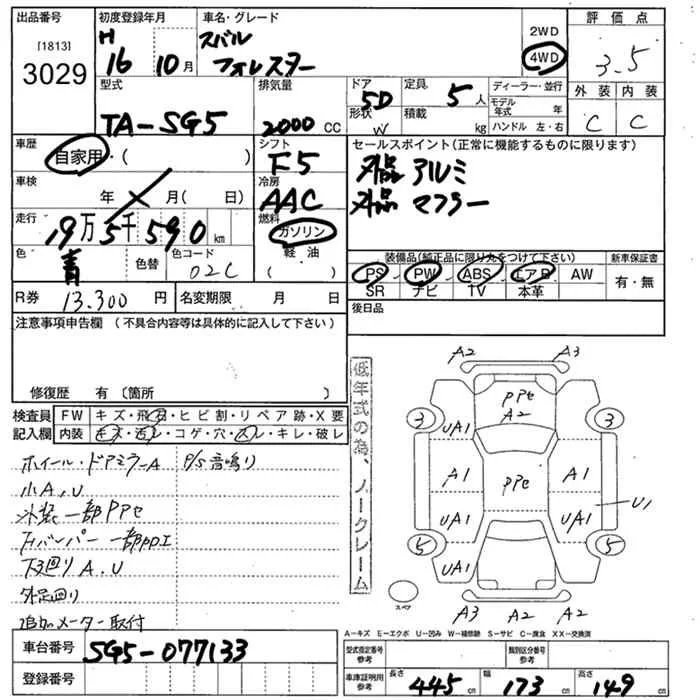 出品番号
[1813]
3029
初度登録年月
H
16 10月
車名・グレード
スバル
フォレスター
2WD
4WD
評価点
3.5
外装 内装
C C
型式
TA-SG5
排気量
2000 CC
ドア
5D
形状
W
定員
5人
積載
kg
ディーラー・並行
モデル年式 年
ハンドル 左・右
車歴
自家用・( )
シフト
F5
車検
年 月( 日)
冷房
AAC
走行
19万5千590 km
燃料
ガソリン
軽油
( )
色
青
色替
色コード
02C
セールスポイント(正常に機能するものに限ります)
外品 アルミ
外品 マフラー
装備品(純正品に限り丸をつけて下さい)
PS PW ABS エアB AW
SR ナビ TV 本革
新車保証書
有・無
R券 13.300 円
名変期限 月 日
後日品
注意事項申告欄 (不具合内容等は具体的に記入して下さい)
修復歴 有 (箇所 )
検査員
記入欄
FW キズ・飛石・ヒビ割・リペア跡・X要
内装 キズ・汚レ・コゲ・穴・スレ・キレ・破レ
ホイール・ドアミラーA
P/S音鳴り
小A.U
外装一部PPセ
下回りA.U
追加メーター取付
低年式の為、ノークレーム
A2 A3
PPセ
A2
3 3
UA1
A1 PPセ A1
UA1 UA1 U1
5 5
UA1
スペア
A3 A2 A2
A-キズ E-エクボ U-凹み W-補修跡 S-サビ C-腐食 XX-交換済
車台番号
SG5-077133
登録番号
型式指定番号
参考
類別区分番号
参考
車庫証明用
参考
長さ 445 cm
幅 173 cm
高さ 149 cm